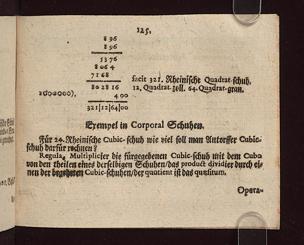 125.
896
896
5376
8064
7168 facit 321. Rheinische Quadrat-schuh.
802816 12. Quadrat-zoll. 64. Quadrat-gran.
400
321|12|64|00
Exempel in Corporal Schuhen.
Für 24. Rheinische Cubic-schuh wie viel soll man Antorffer Cubic-
schuh darfür rechnen?
Regula, Multiplicier die fürgegebenen Cubic-schuh mit dem Cubo
von den theilen eines derselbigen Schuhen/ das product dividier durch ei-
nen der begehrten Cubic-schuhen/ der quotient ist das quæsitum.
Opera-